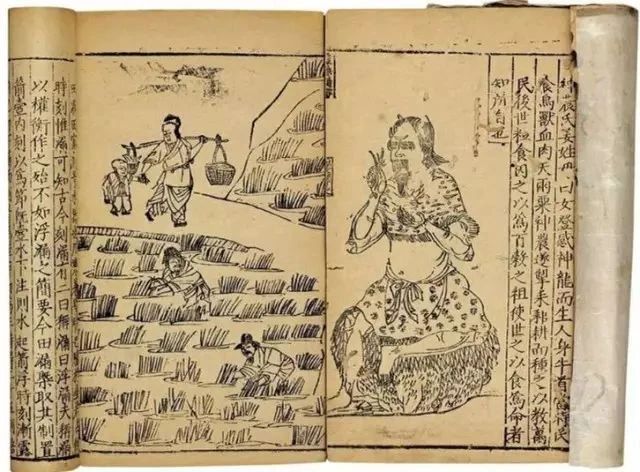 氏姜姓母曰女登感神龍而生人身牛首當時民
食鳥獸血肉天雨粟神農遂犁耒耕而種之以教萬
民後世粒食因之以為百穀之祖使世之以食為命者
知所自也
時刻惟漏可知古今刻漏有二曰稱漏曰浮漏夫稱漏
以權衡作之殆不如浮漏之簡要今田漏槩取其制置
箭壺內刻以為節既壺水下注則水起箭浮時刻漸露